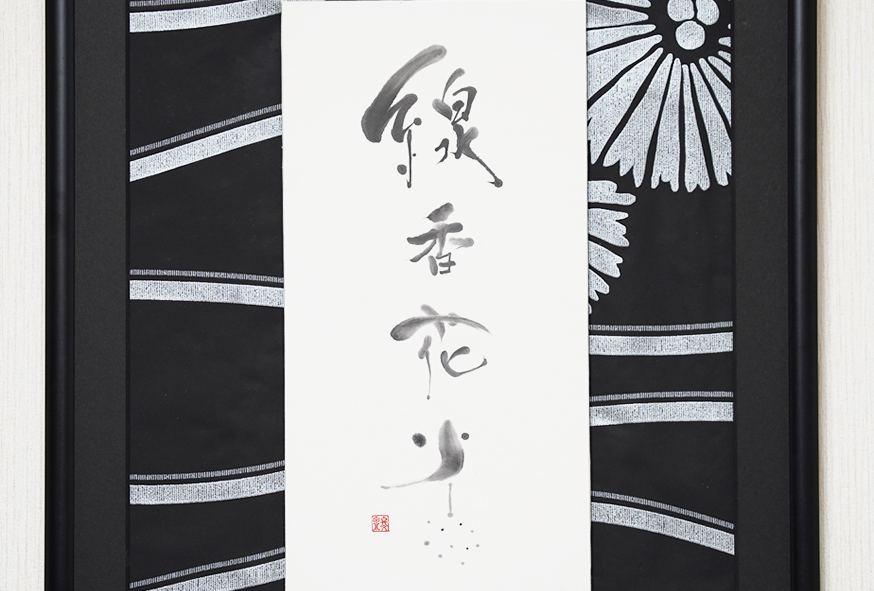 線香花火